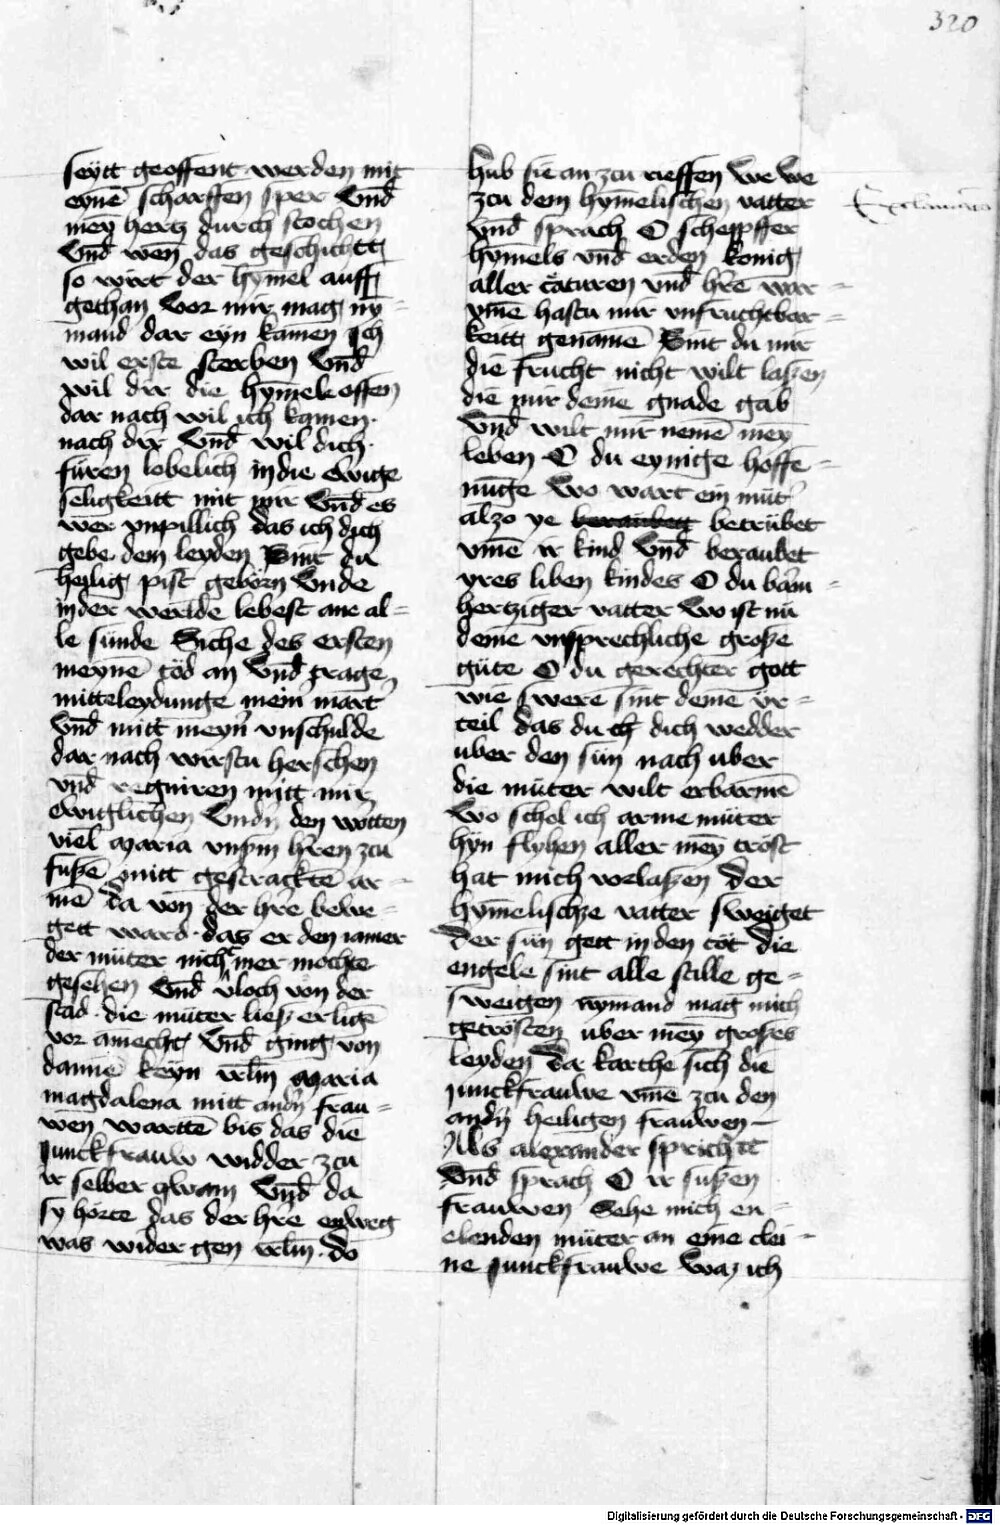 320
seÿtt geoffent werden mit
eynē scharffen sper Vnd̄
meȳ hertz durch stochen
Vnd̄ wen̄ das geschichtt
so wirt der hȳmel auff
gethan Vor mir mag nÿ-
mand dar eÿn kāmen Ich
wil erste sterben Vnd̄
wil dir die hȳmele offen
dar nach wil ich kamen
nach dir Vnd̄ wil dich
füren lobelich in die ewige
seligkeitt mit mir Vnd̄ es
wer vnpillich das ich dich
gebe dem leyden Sint du
heilig pist geborn Vnde
in der werlde lebest ane al-
le sunde Siche des ersten
meynē tod an Vnd̄ trage
mitteleydunge mein mart
Vnd̄ mitt meyn̄ vnschulde
dar nach wirstu herschen
vnd̄ regniren mitt mir
ewiglichen Vndn̄ den worten
viel Maria vnsȳm h̄ren zcu
fußē mitt gestracktē ar-
mē da von der h̄re bewe-
gett ward das er den iamer
der müter nicht mer mochte
gesehen Vnd̄ vloch von der
stad die müter ließ er ligē
vor āmecht Vnd̄ ging von
dannē keÿn irl̄m Maria
magdalena mitt andn̄ frau-
wen warttē bis das die
Junckfrauw widder zcu
ir selber qwam Vnd̄ da
sy horte das der h̄re enweg
was wider gen irl̄m do
hub sie an zcu rieffen We we
zcu dem hȳmelischen vatter
vnd̄ sprach O schepffer
hȳmels vnd̄ erden konig
aller c̄aturen vnd̄ h̄re war-
vmē hastu mir vnfruchtbar-
keitt genāmē Sint du mir
die frucht nicht wilt laßen
die mir deine gnade gab
Vnd̄ wilt mir nemē meȳ
leben O du eynige hoffe-
nūge Wo wart ein müt
alzo ye betrübet
vmē ir kind Vnd̄ beraubet
yres liben kindes O du bārm-
hertziger vatter Wo ist nu
deine vnsprechliche große
güte O du gerechter gott
wie swere sint deine vr-
teil das du dich wedder
uber den sün nach uber
die müter wilt erbarmē
Wo schol ich arme müter
hyn flyhen aller meȳ trost
hat mich vorlaßen Der
hȳmelische vatter sweiget
Der sün gett in den tot Die
engele sint alle stille ge-
sweigen nymand mag mich
getrösten uber meȳ großes
leyden Da karthe sich die
Junckfrauwe vmē zcu den
andn̄ heiligen frauwen
Als alexander sprichtt
Vnd̄ sprach O ir sußen
frauwen Sehe mich en-
elenden müter an eine clei-
ne Junckfrauwe Waz ich
Digitalisierung gefördert durch die Deutsche Forschungsgemeinschaft - DFG